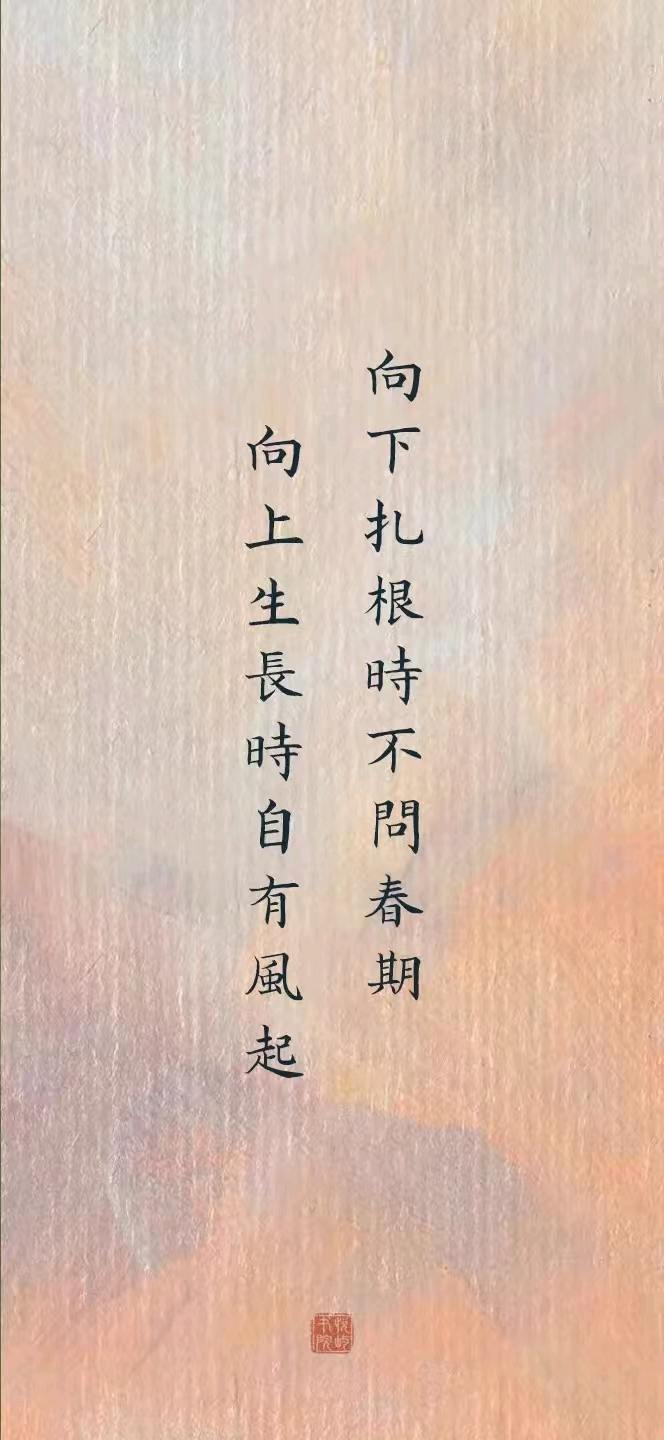 向下扎根時不問春期
向上生長時自有風起